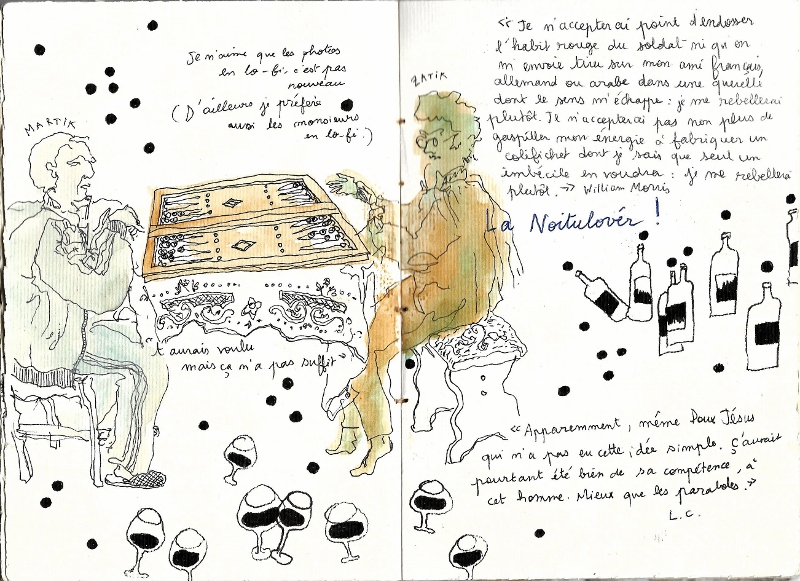 MARTIK
Je n'aime que les photos
en lo-fi, c'est pas
nouveau
(D'ailleurs je préfère
aussi les messieurs
en lo-fi.)
aurais voulu
mais ça n'a pas suffit"
ZATIK
"Je n'accepterai point d'endosser
l'habit rouge du soldat ni qu'on
m'envoie tirer sur mon ami français,
allemand ou arabe dans une querelle
dont le sens m'échappe : je me rebellerai
plutôt. Je n'accepterai pas non plus de
gaspiller mon énergie à fabriquer un
colifichet dont je sais que seul un
imbécile en voudra : je me rebellerai
plutôt." William Morris
La Noitulovér !
"Apparemment, même Doux Jésus
qui n'a pas eu cette idée simple. Ç'aurait
pourtant été bien de sa compétence, à
cet homme. Mieux que les paraboles."
L.C.